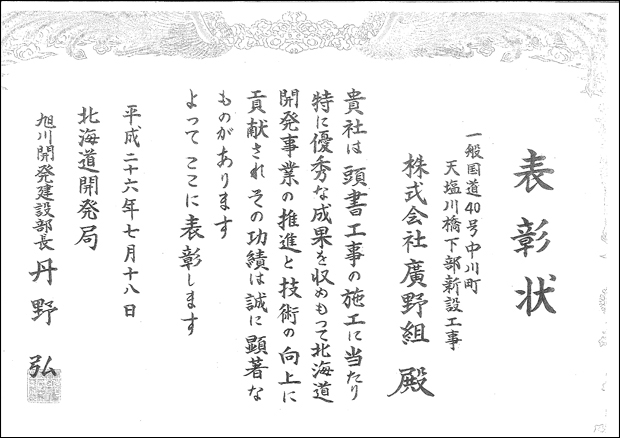 表彰状
一般国道40号中川町
天塩川橋下部新設工事
株式会社廣野組 殿
貴社は頭書工事の施工に当たり
特に優秀な成果を収めもって北海道
開発事業の推進と技術の向上に
貢献されその功績は誠に顕著な
ものがあります
よってここに表彰します
平成二十六年七月十八日
北海道開発局
旭川開発建設部長 丹野 弘